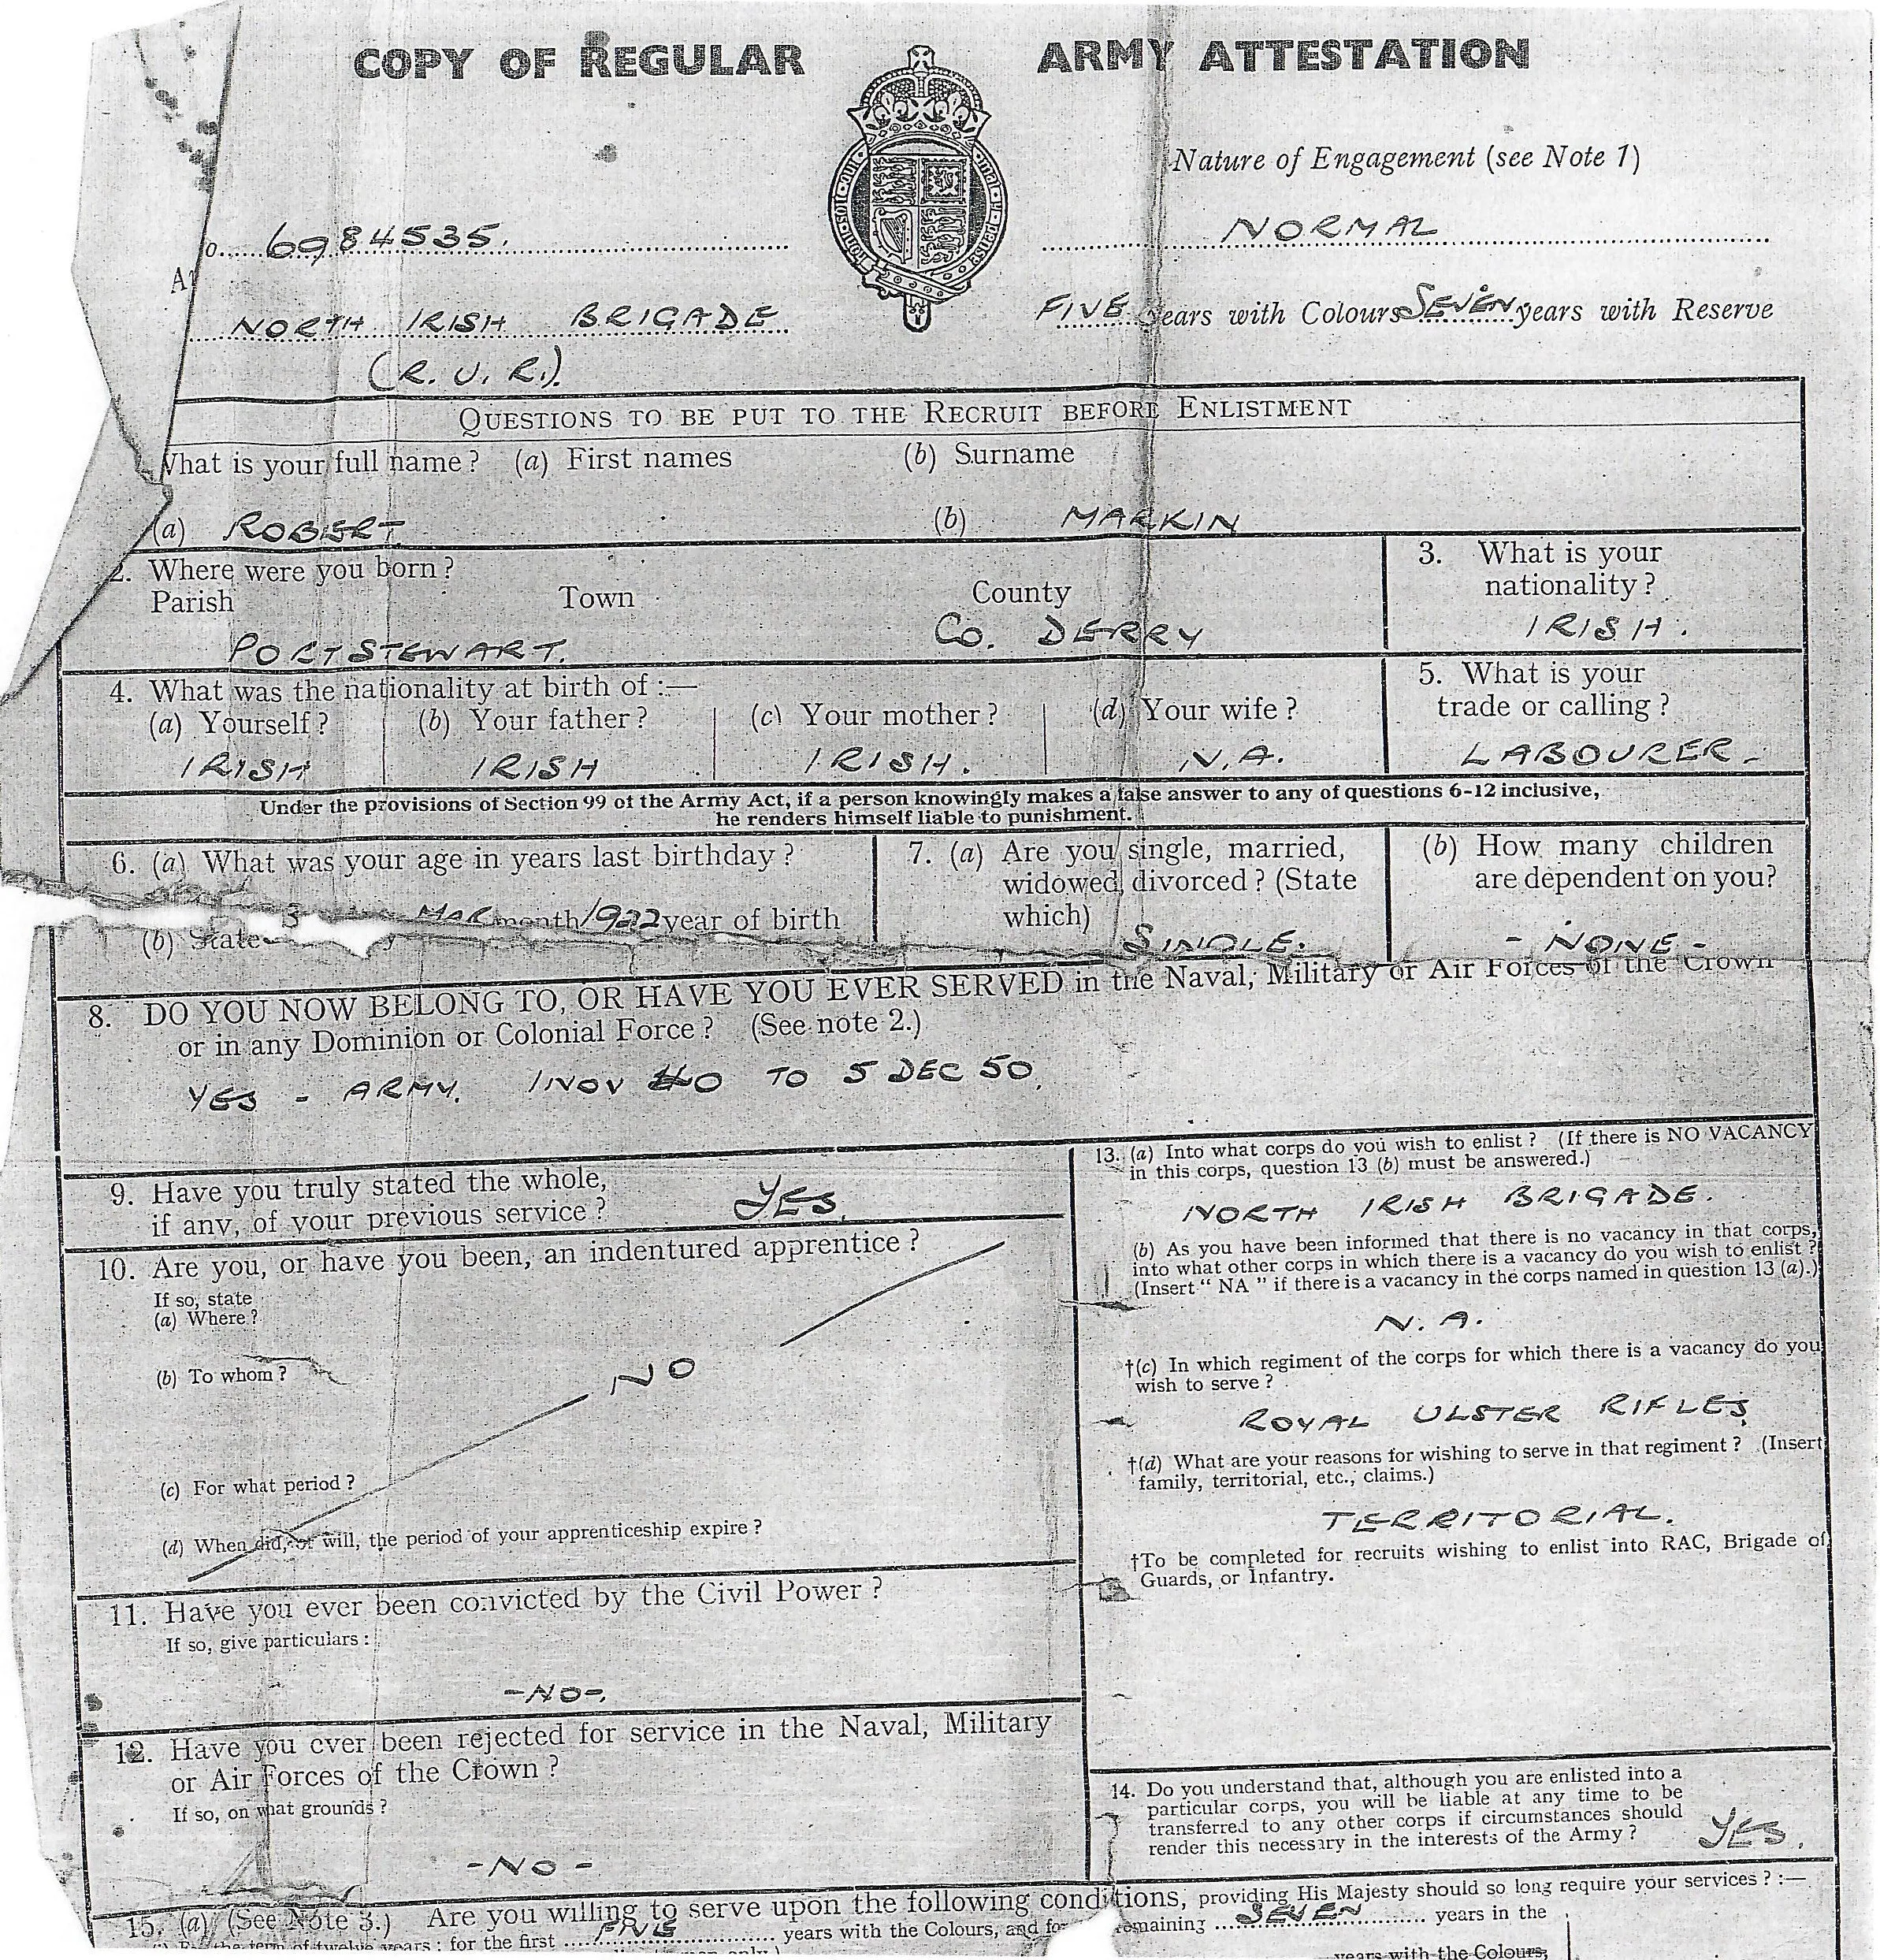 COPY OF REGULAR ARMY ATTESTATION
Nature of Engagement (see Note 1)
6984535.
NORMAL
NORTH IRISH BRIGADE
FIVE years with Colours SEVEN years with Reserve
(R. U. R.).
QUESTIONS TO BE PUT TO THE RECRUIT BEFORE ENLISTMENT
What is your full name? (a) First names (b) Surname
(a) ROBERT. (b) MARKIN
2. Where were you born?
Parish Town County
PORTSTEWART. CO. DERRY
3. What is your
nationality?
IRISH.
4. What was the nationality at birth of :—
(a) Yourself? (b) Your father? (c) Your mother? (d) Your wife?
IRISH IRISH IRISH. N.A.
5. What is your
trade or calling?
LABOURER-
Under the provisions of Section 99 of the Army Act, if a person knowingly makes a false answer to any of questions 6-12 inclusive,
he renders himself liable to punishment.
6. (a) What was your age in years last birthday?
(b) State MAR month 1922 year of birth
7. (a) Are you single, married,
widowed, divorced? (State
which)
SINGLE.
(b) How many children
are dependent on you?
- NONE -
8. DO YOU NOW BELONG TO, OR HAVE YOU EVER SERVED in the Naval, Military or Air Forces of the Crown
or in any Dominion or Colonial Force? (See note 2.)
YES - ARMY. 1 NOV 40 TO 5 DEC 50.
9. Have you truly stated the whole,
if any, of your previous service? YES.
10. Are you, or have you been, an indentured apprentice?
If so, state
(a) Where?
(b) To whom?
NO
(c) For what period?
(d) When did, or will, the period of your apprenticeship expire?
11. Have you ever been convicted by the Civil Power?
If so, give particulars :
-NO-.
12. Have you ever been rejected for service in the Naval, Military
or Air Forces of the Crown?
If so, on what grounds?
-NO-
13. (a) Into what corps do you wish to enlist? (If there is NO VACANCY
in this corps, question 13 (b) must be answered.)
NORTH IRISH BRIGADE.
(b) As you have been informed that there is no vacancy in that corps,
into what other corps in which there is a vacancy do you wish to enlist?
(Insert "NA" if there is a vacancy in the corps named in question 13 (a).)
N. A.
†(c) In which regiment of the corps for which there is a vacancy do you
wish to serve?
ROYAL ULSTER RIFLES.
†(d) What are your reasons for wishing to serve in that regiment? (Insert
family, territorial, etc., claims.)
TERRITORIAL.
†To be completed for recruits wishing to enlist into RAC, Brigade of
Guards, or Infantry.
14. Do you understand that, although you are enlisted into a
particular corps, you will be liable at any time to be
transferred to any other corps if circumstances should
render this necessary in the interests of the Army? YES.
15. (a) (See Note 3.) Are you willing to serve upon the following conditions, providing His Majesty should so long require your services? :—
for the first FIVE years with the Colours, and for remaining SEVEN years in the
years with the Colours,